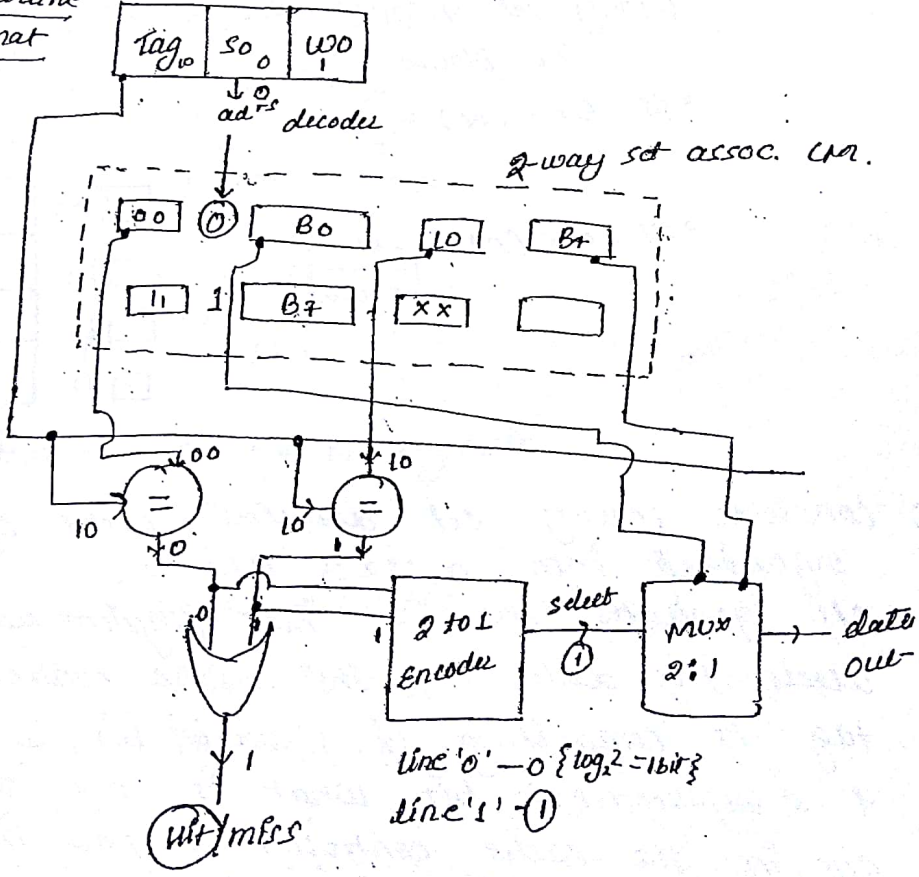 nat
Tag 10 S0 0 W0 1
0
adrs decoder
2-way set assoc. CM.
00 0 B0 10 B4
11 1 B7 XX
00 10
= =
10 10
0 1
0 1 1
2 to 1 Encoder
select
1
MUX 2:1
data out
1
line '0' - 0 {log₂2 = 1bit}
line '1' - 1
Hit/miss